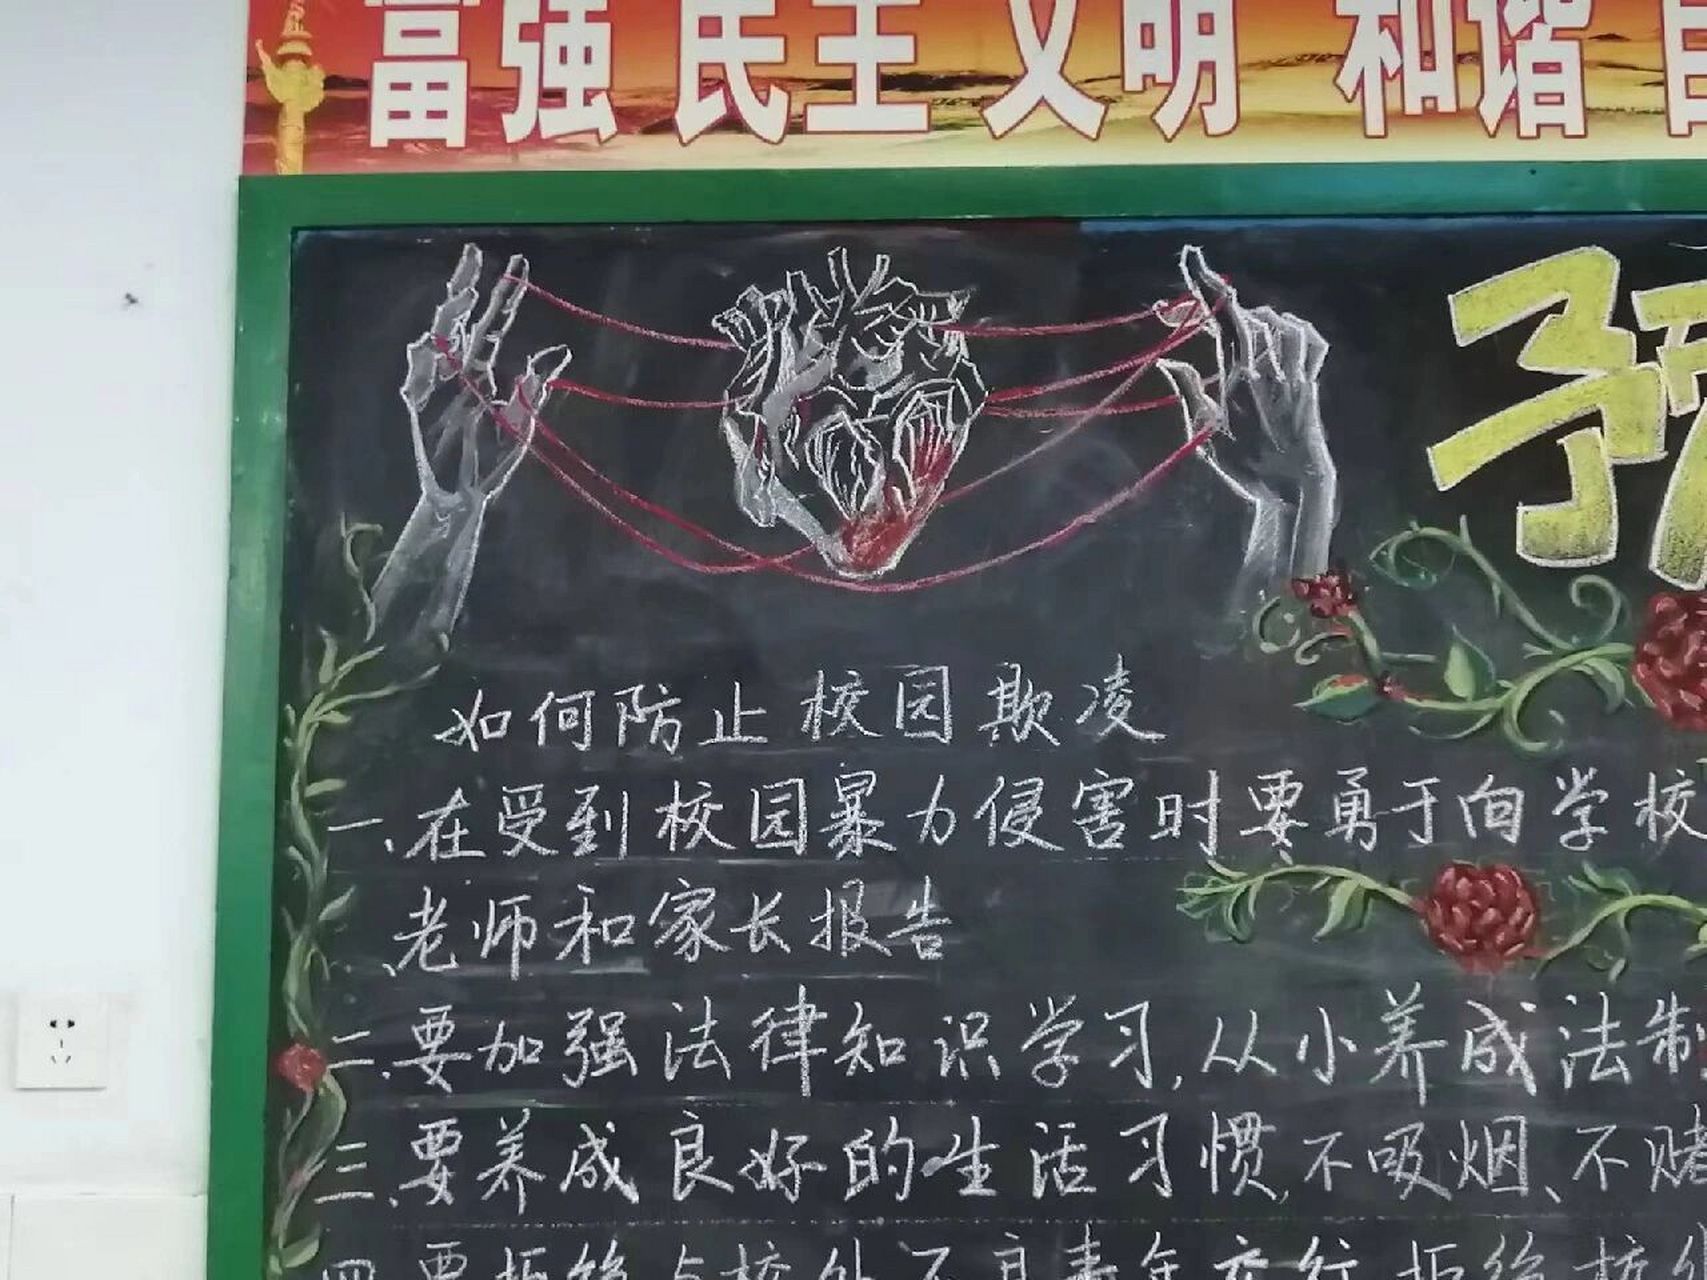 富强 民主 文明 和谐
预
如何防止校园欺凌
一、在受到校园暴力侵害时要勇于向学校
、老师和家长报告
二、要加强法律知识学习,从小养成法制
三、要养成良好的生活习惯,不吸烟、不赌
四、要拒绝与校外不良青年交往,拒绝校外